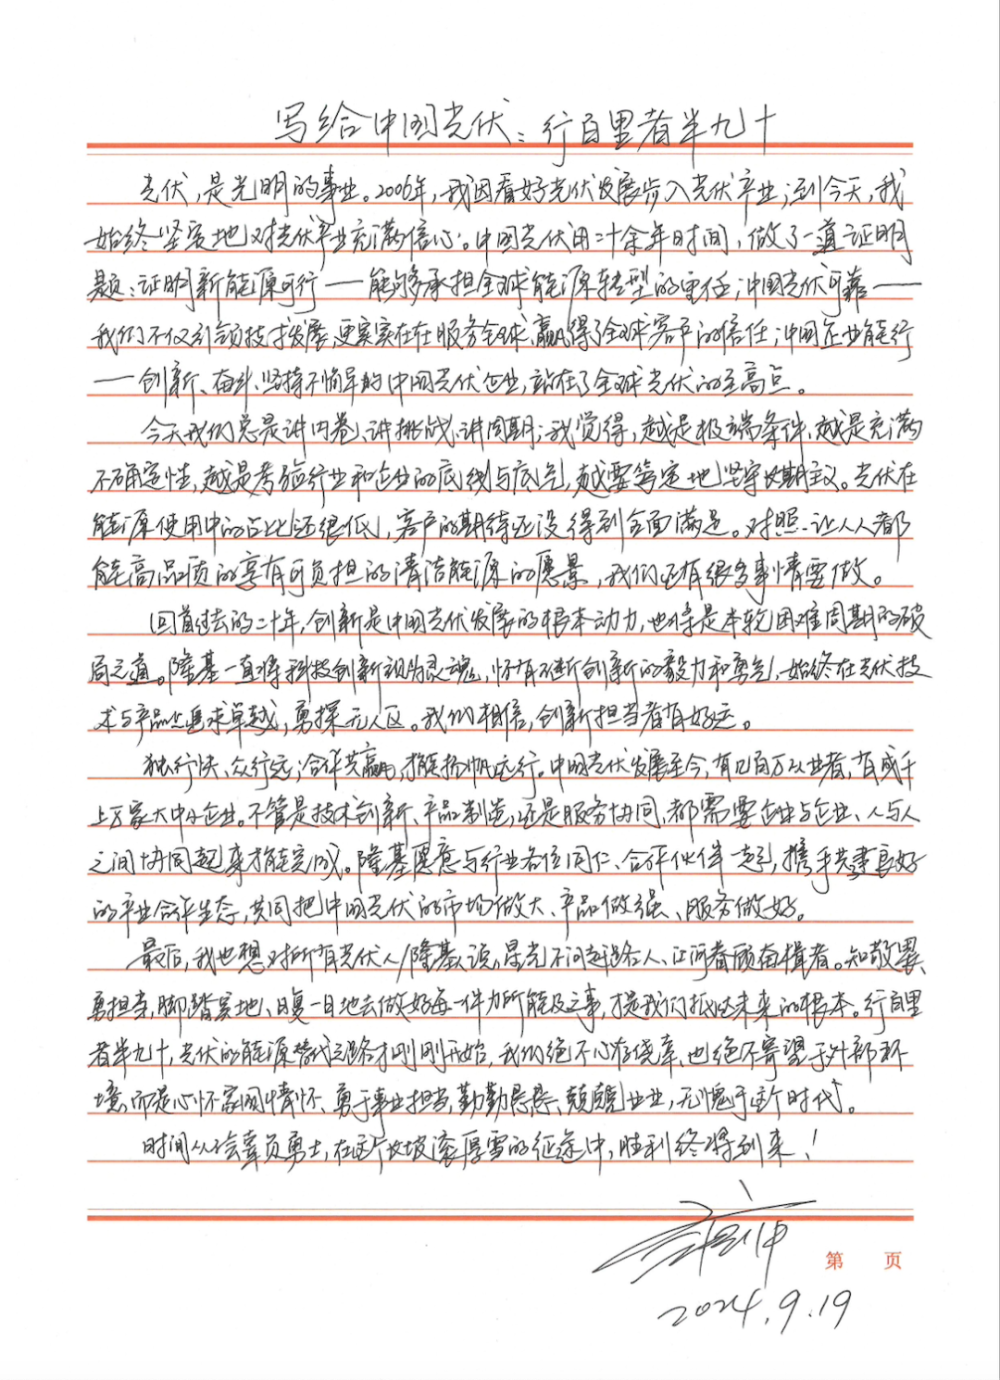 写给中国光伏:行百里者半九十
光伏,是光明的事业。2006年,我因看好光伏发展步入光伏产业;到今天,我
始终坚定地对光伏产业充满信心。中国光伏用二十余年时间,做了一道证明
题:证明新能源可行——能够承担全球能源转型的重任;中国光伏可靠——
我们不仅引领技术发展,更实实在在服务全球,赢得了全球客户的信任;中国企业能行
——创新、奋斗、坚持不懈早的中国光伏企业,站在了全球光伏的至高点。
今天我们总是讲内卷,讲挑战,讲周期;我觉得,越是极端条件,越是充满
不确定性,越是考验行业和企业的底线与底气,越要笃定地坚守长期主义。光伏在
能源使用中的占比还很低,客户的期待还没得到全面满足。对照让人人都
能高品质的享有可负担的清洁能源的愿景,我们还有很多事情要做。
回首过去的二十年,创新是中国光伏发展的根本动力,也将是本轮困难周期的破
局之道。隆基一直将科技创新视为灵魂,怀有不断创新的毅力和勇气,始终在光伏技
术与产品上追求卓越,勇探无人区。我们相信,创新担当者有好运。
独行快、众行远;合作共赢,才能扬帆远行。中国光伏发展至今,有几百万从业者,有成千
上万家大中小企业。不管是技术创新、产品制造,还是服务协同,都需要企业与企业、人与人
之间协同起来才能完成。隆基愿意与行业各位同仁、合作伙伴一起,携手共建良好
的产业合作生态,共同把中国光伏的市场做大、产品做强、服务做好。
最后,我也想对所有光伏人/隆基人说,星光不问赶路人、江河眷顾奋楫者。知敬畏
勇担当,脚踏实地、日复一日地去做好每一件力所能及之事,才是我们抵达未来的根本。行百里
者半九十,光伏的能源替代之路才刚刚开始,我们绝不心存侥幸,也绝不寄望于外部环
境,而是心怀家国情怀、勇于事业担当,勤勤恳恳、兢兢业业,无愧于这个时代。
时间从不会辜负勇士,在这个长坡滚厚雪的征途中,胜利终将到来!
2024.9.19
第 页